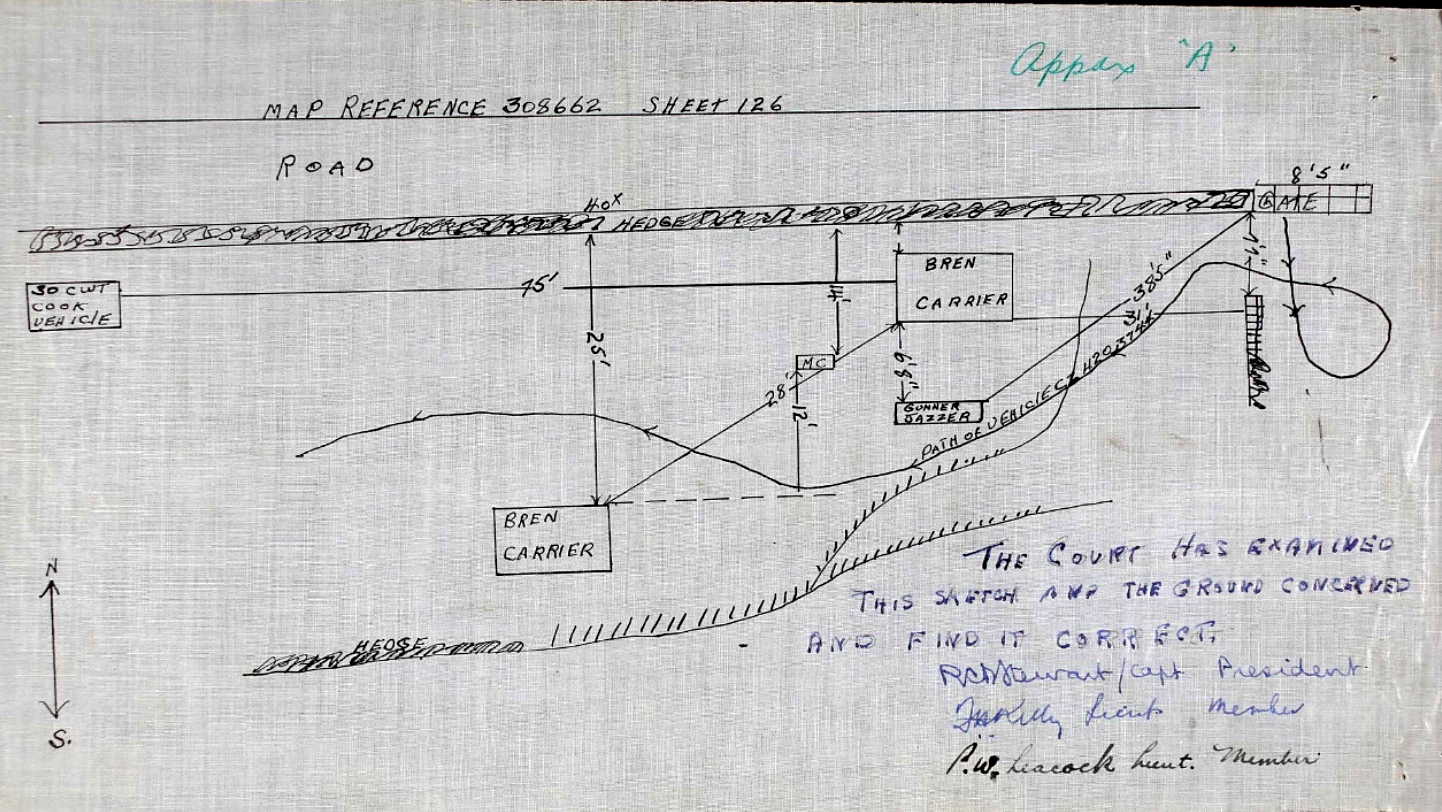 Appdx 'A'
MAP REFERENCE 308662 SHEET 126
ROAD
8'5"
40X
HEDGE
GATE
30 CWT
COOK
VEHICLE
75'
BREN
CARRIER
14'
7'7"
38'5"
31'
25'
MC
6'8"
28'
12'
GUNNER
JAZZER
PATH OF VEHICLE CZ 4203744
BREN
CARRIER
N
S.
HEDGE
THE COURT HAS EXAMINED
THIS SKETCH AND THE GROUND CONCERNED
AND FIND IT CORRECT.
Stewart/Capt President
Kelly Lieut Member
P.W. Leacock Lieut. Member